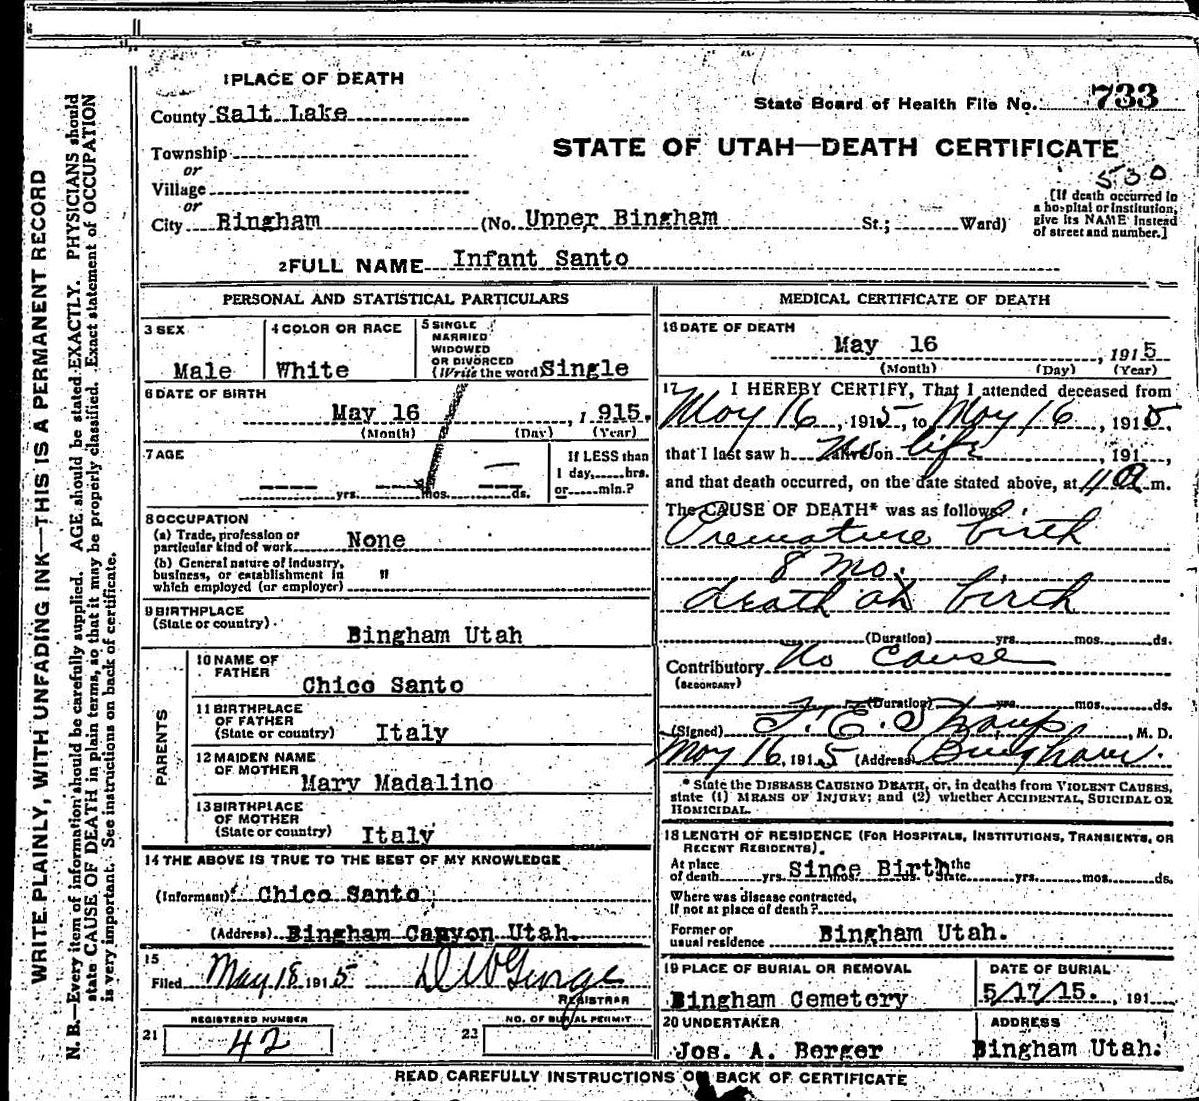 WRITE PLAINLY, WITH UNFADING INK—THIS IS A PERMANENT RECORD
N. B.—Every item of information should be carefully supplied. AGE should be stated EXACTLY. PHYSICIANS should
state CAUSE OF DEATH in plain terms, so that it may be properly classified. Exact statement of OCCUPATION
is very important. See instructions on back of certificate.
1 PLACE OF DEATH
State Board of Health File No. 733
County Salt Lake
STATE OF UTAH—DEATH CERTIFICATE
Township
or
Village
or
530
[If death occurred in
a hospital or institution,
give its NAME instead
of street and number.]
City Bingham (No. Upper Bingham St.; Ward)
2 FULL NAME Infant Santo
PERSONAL AND STATISTICAL PARTICULARS
3 SEX
Male
4 COLOR OR RACE
White
5 SINGLE
MARRIED
WIDOWED
OR DIVORCED
(Write the word) Single
6 DATE OF BIRTH
May 16, 1915.
(Month) (Day) (Year)
7 AGE
yrs. mos. ds.
If LESS than
1 day, hrs.
or min.?
8 OCCUPATION
(a) Trade, profession or
particular kind of work None
(b) General nature of industry,
business, or establishment in "
which employed (or employer)
9 BIRTHPLACE
(State or country)
Bingham Utah
PARENTS
10 NAME OF
FATHER
Chico Santo
11 BIRTHPLACE
OF FATHER
(State or country) Italy
12 MAIDEN NAME
OF MOTHER
Mary Madalino
13 BIRTHPLACE
OF MOTHER
(State or country) Italy
14 THE ABOVE IS TRUE TO THE BEST OF MY KNOWLEDGE
(Informant) Chico Santo
(Address) Bingham Canyon Utah.
15
Filed May 18 1915 D W George
REGISTRAR
REGISTERED NUMBER
21 42
NO. OF BURIAL PERMIT
23
MEDICAL CERTIFICATE OF DEATH
16 DATE OF DEATH
May 16, 1915
(Month) (Day) (Year)
17 I HEREBY CERTIFY, That I attended deceased from
May 16, 1915, to May 16, 1915,
that I last saw h alive on No life, 191 ,
and that death occurred, on the date stated above, at 11 a m.
The CAUSE OF DEATH* was as follows:
Premature birth
8 mo.
death at birth
(Duration) yrs. mos. ds.
Contributory No cause
(SECONDARY)
(Duration) yrs. mos. ds.
(Signed) F. E. Straup, M. D.
May 16, 1915 (Address) Bingham.
* State the DISEASE CAUSING DEATH, or, in deaths from VIOLENT CAUSES,
state (1) MEANS OF INJURY; and (2) whether ACCIDENTAL, SUICIDAL OR
HOMICIDAL.
18 LENGTH OF RESIDENCE (FOR HOSPITALS, INSTITUTIONS, TRANSIENTS, OR
RECENT RESIDENTS).
At place In the
of death yrs. Since Birth mos. ds. State yrs. mos. ds.
Where was disease contracted,
If not at place of death?
Former or
usual residence Bingham Utah.
19 PLACE OF BURIAL OR REMOVAL
Bingham Cemetery
DATE OF BURIAL
5/17/15., 191
20 UNDERTAKER
Jos. A. Berger
ADDRESS
Bingham Utah.
READ CAREFULLY INSTRUCTIONS ON BACK OF CERTIFICATE